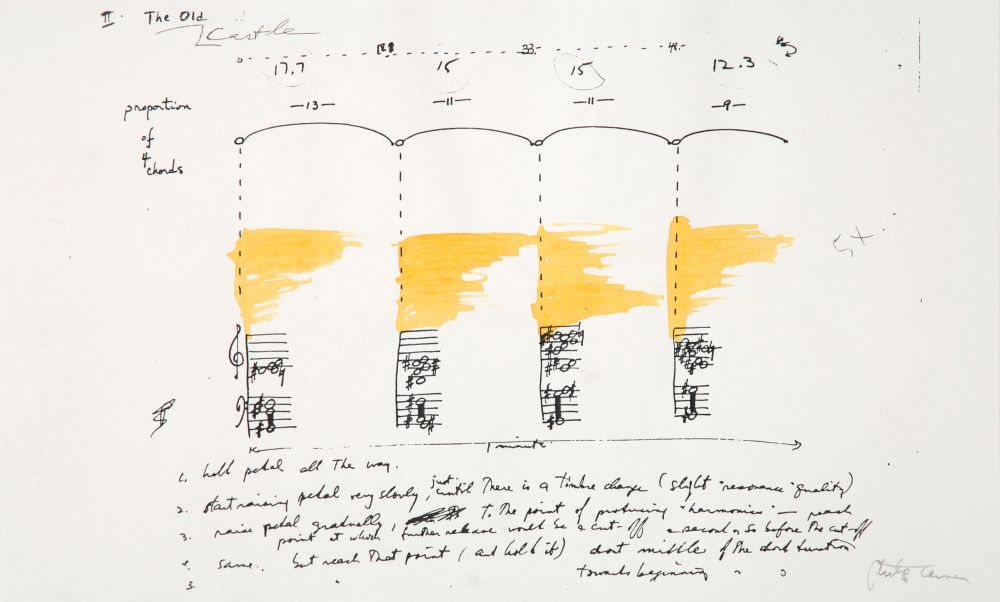 II. The Old
Castle
33. 48.
17.7 15 15 12.3
proportion —13— —11— —11— —9—
of
4
chords
5x
1 minute
1. hold pedal all The way.
2. start raising pedal very slowly, just until There is a timbre change (slight "resonance" quality)
3. raise pedal gradually, To The point of producing "harmonics" — reach
point at which further release would be a cut-off a second or so before The cut-off
4. same. but reach That point (and hold it) about middle of The chord duration
5. " towards beginning " "